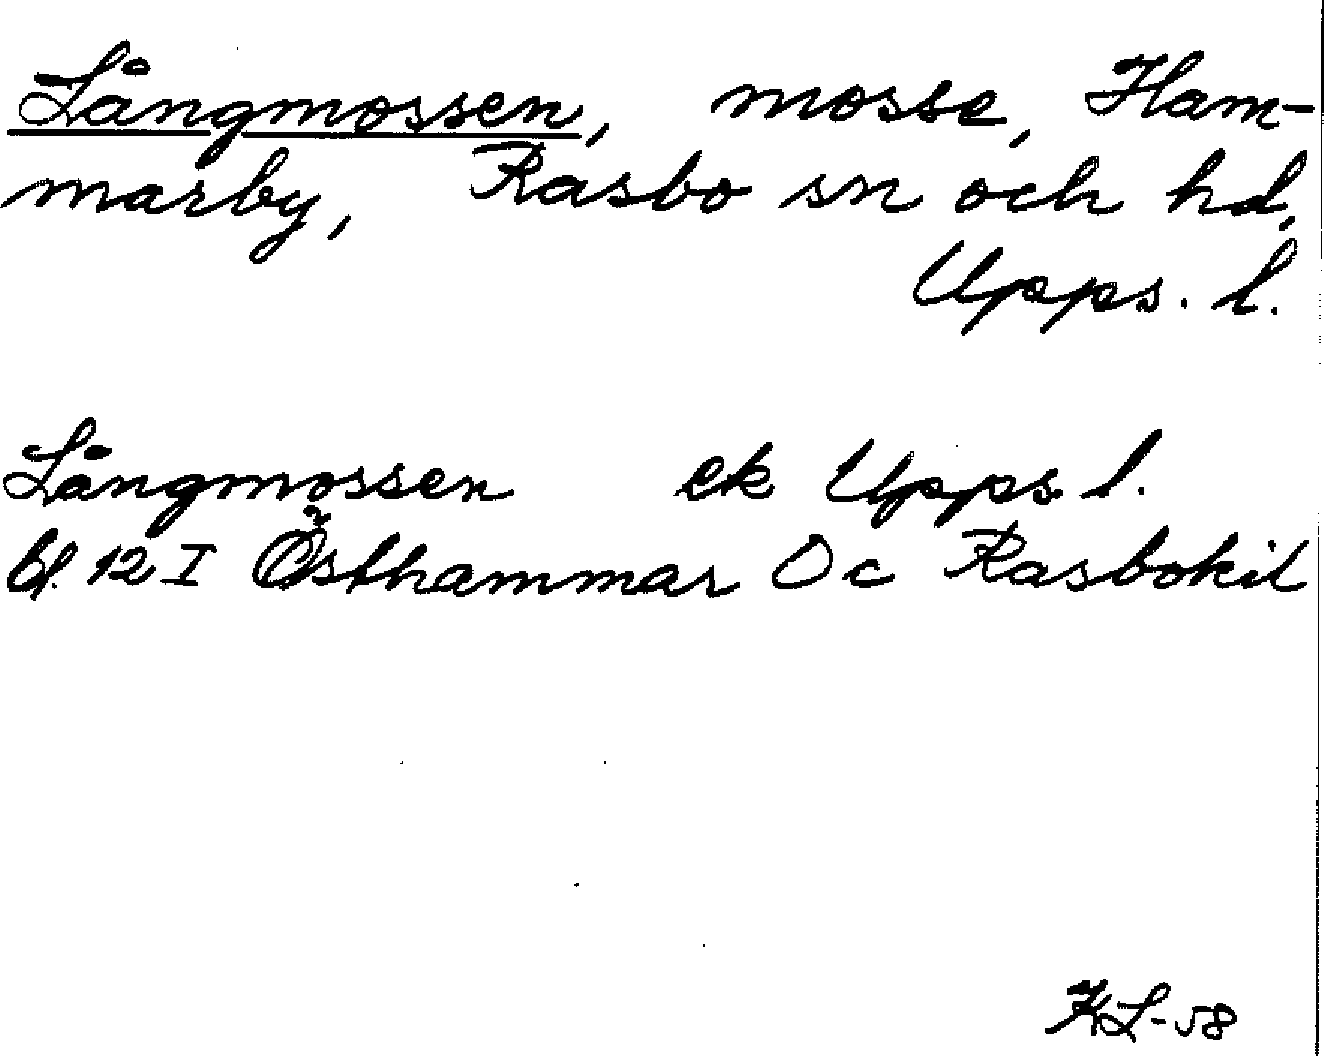 Långmossen, mosse, Ham-
marby, Rasbo sn och hd,
Upps. l.
Långmossen ek Upps. l.
bl. 12 I Östhammar Oc Rasbokil
KL-58